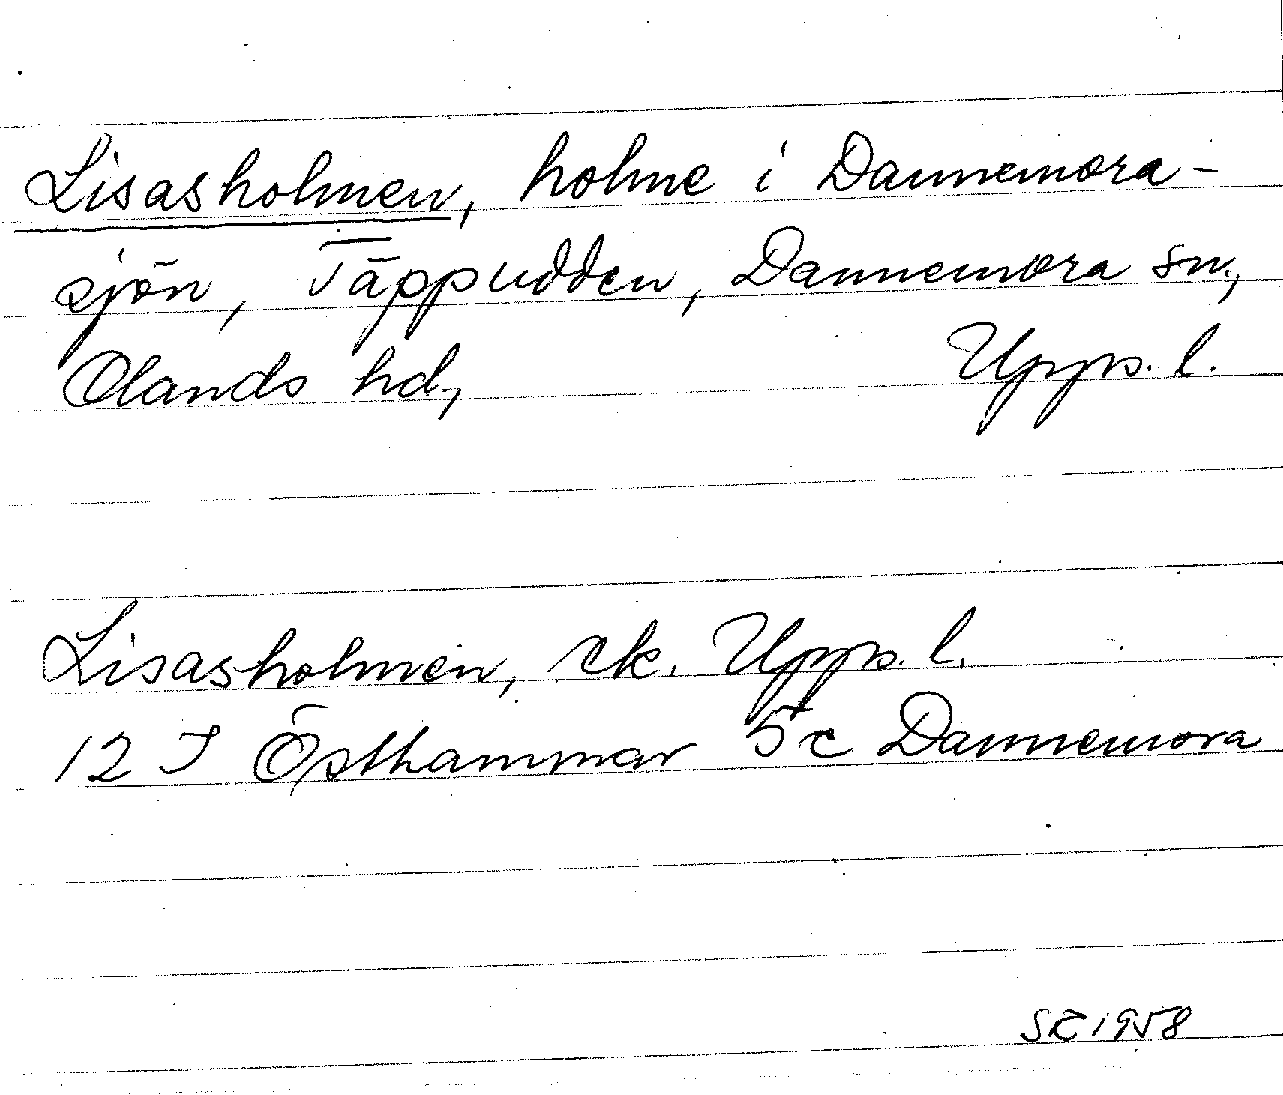 Lisasholmen, holme i Dannemora-
sjön, Täppudden, Dannemora sn,
Olands hd, Upps. l.
Lisasholmen, ek. Upps. l.
12 I Östhammar 5 c Dannemora
1958